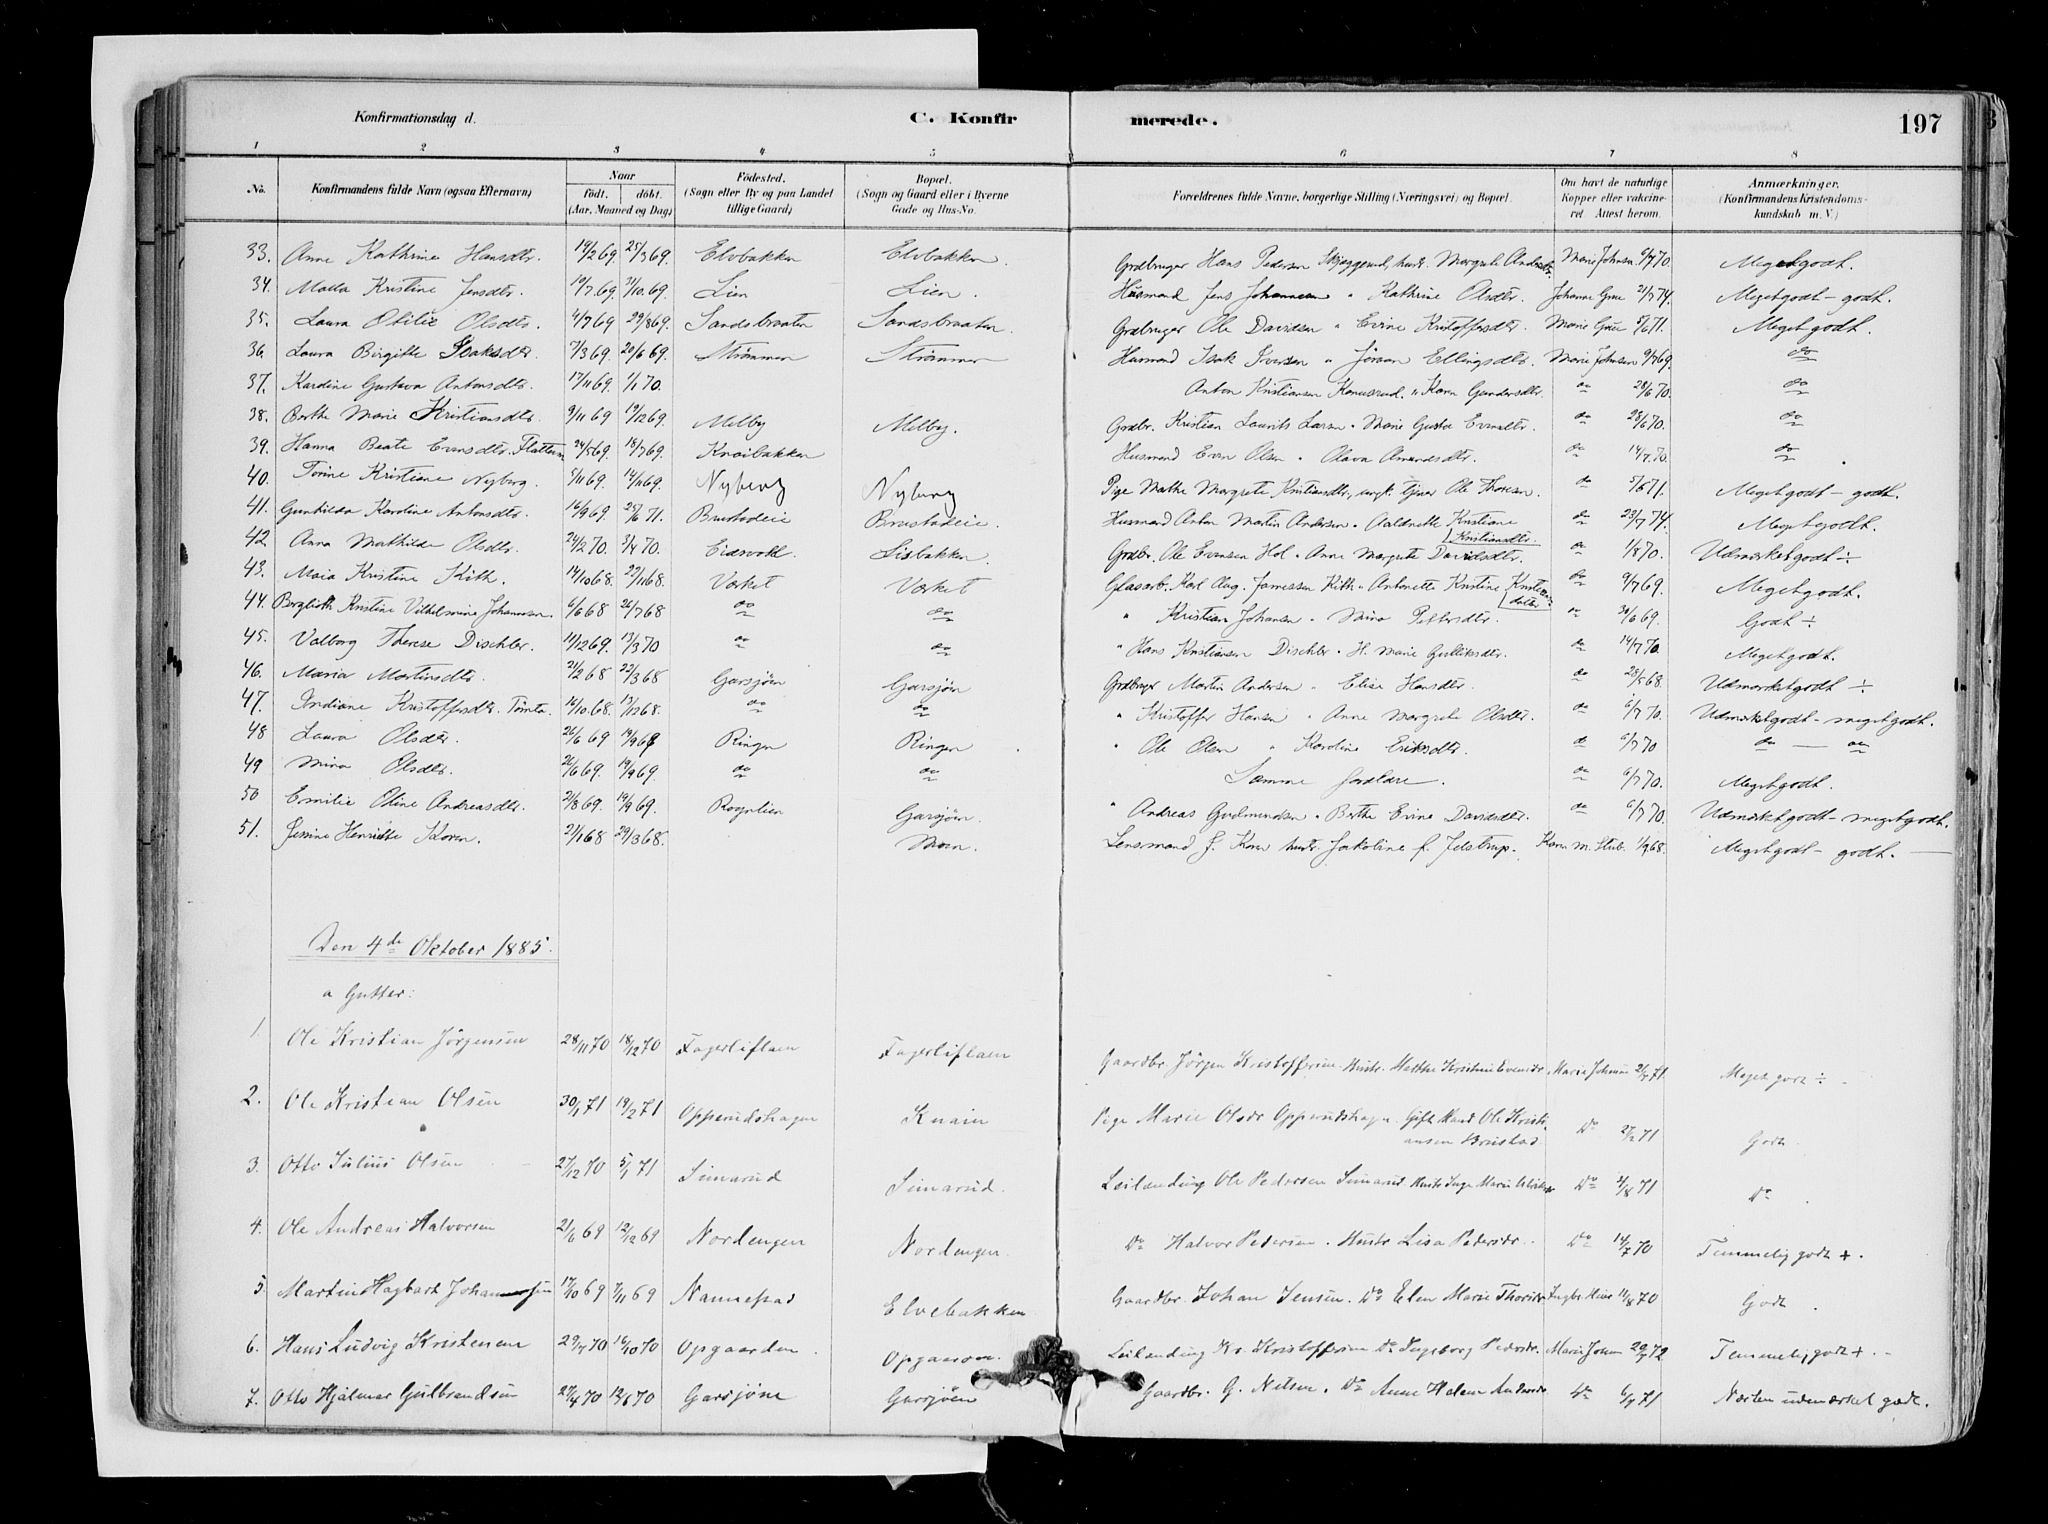 Konfirmationsdag d. C. Konfirmerede. 197
1 2 3 4 5 6 7 8
No. Konfirmandens fulde Navn (ogsaa Efternavn) Naar født. døbt. (Aar, Maaned og Dag) Fødested. (Sogn eller By og paa Landet tillige Gaard) Bopæl. (Sogn og Gaard eller i Byerne Gade og Hus-No. Forældrenes fulde Navne, borgerlige Stilling (Næringsvei) og Bopæl. Om havt de naturlige Kopper eller vakcineret Attest herom. Anmærkninger. (Konfirmandens Kristendomskundskab m. V.)
33. Anne Kathrine Hansdtr. 19/2 69. 25/3 69. Elvbakken Elvbakken. Grdbruger Hans Pedersen Skjæggerud, hustr. Margrete Andersdtr. Marie Johnsen 6/7 70. Megetgodt.
34. Kristine Jensdtr. 10/7 69. 31/10 69. Lien Lien. Husmand Jens Johannesen " Kathrine Olsdtr. Johanne Grue 21/7 74. Megetgodt – godt.
35. Laura Otilie Olsdtr. 4/7 69 29/8 69. Sandsbraaten Sandsbraaten. Grdbruger Ole Davidsen " Evine Kristoffersdtr. Marie Grue 5/6 71. Megetgodt.
36. Laura Birgitte Isaksdtr. 7/3 69. 20/6 69. Strømmen Strømmen Husmand Isak Iversen " Jøran Ellingsdtr. Marie Johnsen 9/7 69. do
37. Kardine Gustava Antonsdtr. 17/11 69. 1/1 70. Anton Kristiansen " Karen Gundersdtr. do 28/6 70. do
38. Berthe Marie Kristiansdtr. 9/11 69 19/12 69. Melby Melby. Grdbr. Kristian Laurits Larsen " Marie Gustva Evensdtr. do 28/6 70. do
39. Hanna Beate Evensdtr. Flatteren 24/5 69. 18/7 69. Knaibakken Husmand Even Olsen " Olava Amundsdtr. do 14/7 70. do
40. Torine Kristiane Nyberg. 5/11 69. 14/11 69. Nyberg Nyberg Pige Mathe Margrete Kristiansdtr., ungk. Tjener Ole Thoresen. do 5/6 71. Megetgodt – godt.
41. Gunhilda Karoline Antonsdtr. 16/9 69. 25/6 71. Brustadeie Brustadeie. Husmand Anton Martin Andersen " Aaldnette Kristiane Kristiansdtr. do 23/7 74. Megetgodt.
42 Anna Mathilde Olsdtr. 24/2 70. 3/4 70. Eidsvold. Lisbakken. Grdbr. Ole Evensen Hol " Anne Margrete Davidsdtr. do 1/8 70. Udmærketgodt ÷
43. Maia Kristine Kith. 14/10 68. 22/11 68. Værket Værket Glasarb. Karl Aug. Jamessen Kith " Antonette Kristine Kristensdatter do 9/7 69. Megetgodt.
44. Berglioth Kristine Vilhelmine Johannsen. 6/6 68 26/7 68 do do " Kristian Johansen " Mina Petersdtr. do 30/6 69. Godt ÷
45. Valborg Therese Dischler. 11/12 69. 13/3 70 do do " Hans Kristiansen Dischler " H. Marie Gulliksdtr. do 14/7 70. Megetgodt.
46. Maria Martinsdtr. 21/2 68 22/3 68 Garsjøen Garsjøen Grdbruger Martin Andersen " Elise Hansdtr. do 28/5 68. Udmærketgodt ÷
47. Indiane Kristoffersdtr. Tømta. 16/10 68. 13/12 68. do do " Kristoffer Hansen " Anne Margrete Olsdtr. do 6/7 70. Udmærketgodt – megetgodt.
48 Laura Olsdtr. 26/6 69 19/9 69 Ringen Ringen. " Ole Olsen " Karoline Eriksdtr. do 6/7 70 do — do
49 Mina Olsdtr. 26/6 69. 19/9 69. do do Samme forældre. do 6/7 70. Megetgodt.
50 Emilie Oline Andreasdtr. 2/8 69. 19/9 69. Rognlien Garsjøen. " Andreas Gudmundsen " Berthe Evine Davidsdtr. do 6/7 70. Udmærketgodt – megetgodt.
51. Jensine Henriette Koren. 21/1 68 29/3 68. Moen. Lensmand J. Koren hustr. Jakoline f. Jelstrup. Karen M. Stub. 1/9 68. Megetgodt – godt. —
Den 4de Oktober 1885.
a Gutter:
1. Ole Kristian Jørgensen 28/11 70 18/12 70 Fagerliflaen Fagerliflaen Gaardbr. Jørgen Kristoffersen. Hustr. Mathe Kristine Evensdr. Marie Johnsen 2/7 71 Meget godt ÷
2. Ole Kristian Olsen 30/1 71 19/2 71 Opperudshagen Knaien Pige Marie Olsdr Opperudshagen. Gift Mand Ole Kristiansen Brustad. Do 27/2 71 Godt.
3. Otto Julius Olsen 27/12 70 5/1 71 Simarud Simarud. Leilænding Ole Pedersen Simarud Hustr Inge Marie Do 2/8 71 Do.
4. Ole Andreas Halvorsen 21/6 69 12/12 69 Nordengen Nordengen. Do Halvor Pedersen. Hustr Lisa Pedersdr. Do 14/7 70 Temmelig godt +.
5. Martin Hagbart Johannessen 17/10 69 7/11 69 Nannestad Elvebakken Gaardbr. Johan Jensen. Do Elen Marie Thorsdr. 11/8 70 Godt.
6. Hans Ludvig Kristensen 29/7 70 16/10 70 Opgaarden Opgaarden. Leilænding Kr. Kristoffersen Do Ingeborg Pedersdr. Marie Johnsen 29/7 72 Temmelig godt +.
7. Otto Hjalmar Gulbrandsen 27/4 70 12/6 70 Garsjøen Garsjøen Gaardbr. G. Nilsen. Do Anne Helene Andersdr. Do 6/7 71 Næsten udmærket godt.